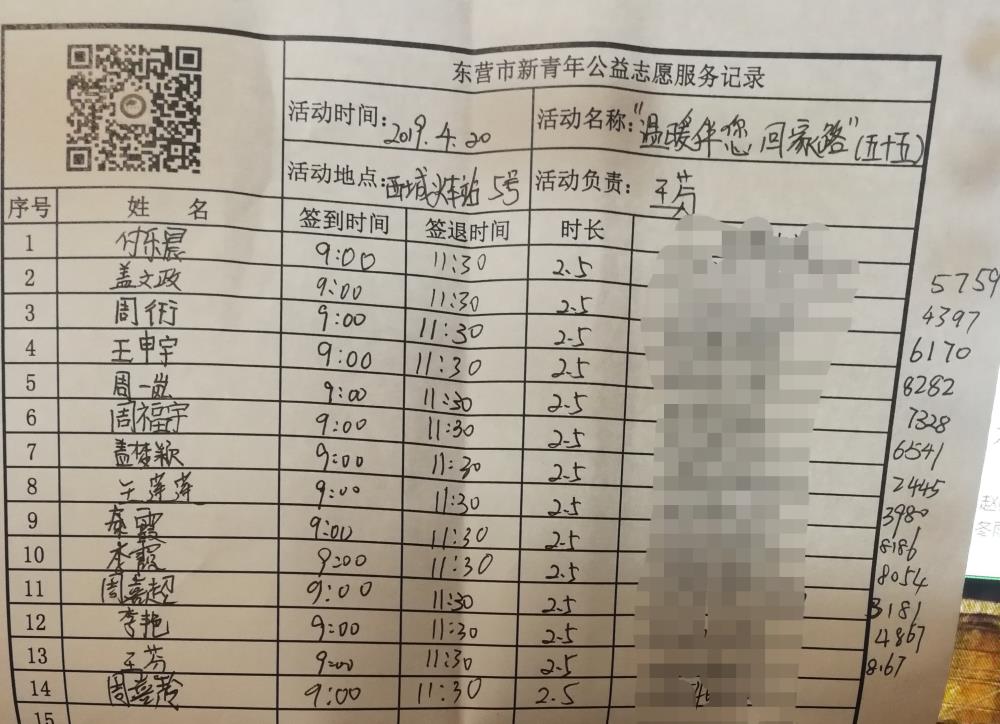 东营市新青年公益志愿服务记录
活动时间: 2019.4.20 活动名称:"温暖伴您回家路"(五十五)
活动地点: 西城火车站 5号 活动负责: 王芬
序号 姓 名 签到时间 签退时间 时长
1 付乐晨 9:00 11:30 2.5
2 盖文政 9:00 11:30 2.5 5759
3 周衍 9:00 11:30 2.5 4397
4 王申宇 9:00 11:30 2.5 6170
5 周一 9:00 11:30 2.5 8282
6 周福宇 9:00 11:30 2.5 7328
7 盖梦颖 9:00 11:30 2.5 6541
8 王萍萍 9:00 11:30 2.5 2445
9 秦霞 9:00 11:30 2.5 3980
10 李靓 9:00 11:30 2.5 8186
11 周嘉超 9:00 11:30 2.5 8054
12 李艳 9:00 11:30 2.5 3181
13 王芬 9:00 11:30 2.5 4867
14 周 9:00 11:30 2.5 8167
15